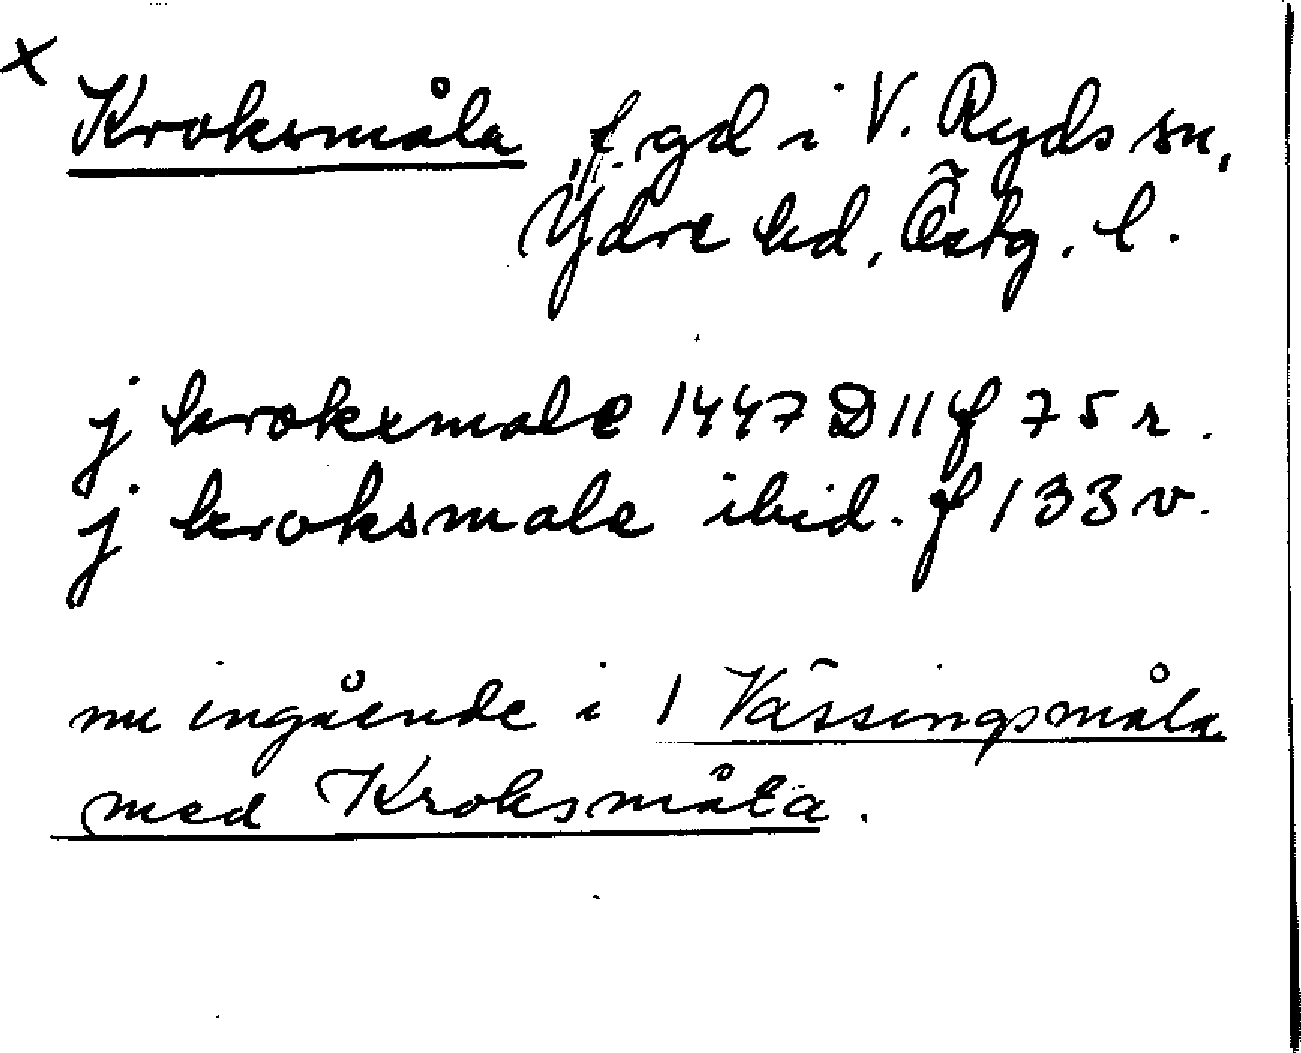 x
Kroksmåla f. gd i V. Ryds sn,
Ydre hd, Östg. l.
j krokxmale 1447 D 11 f 75 r.
j kroksmale ibid. f 133 v.
nu ingående i 1 Vässingsmåla
med Kroksmåla.